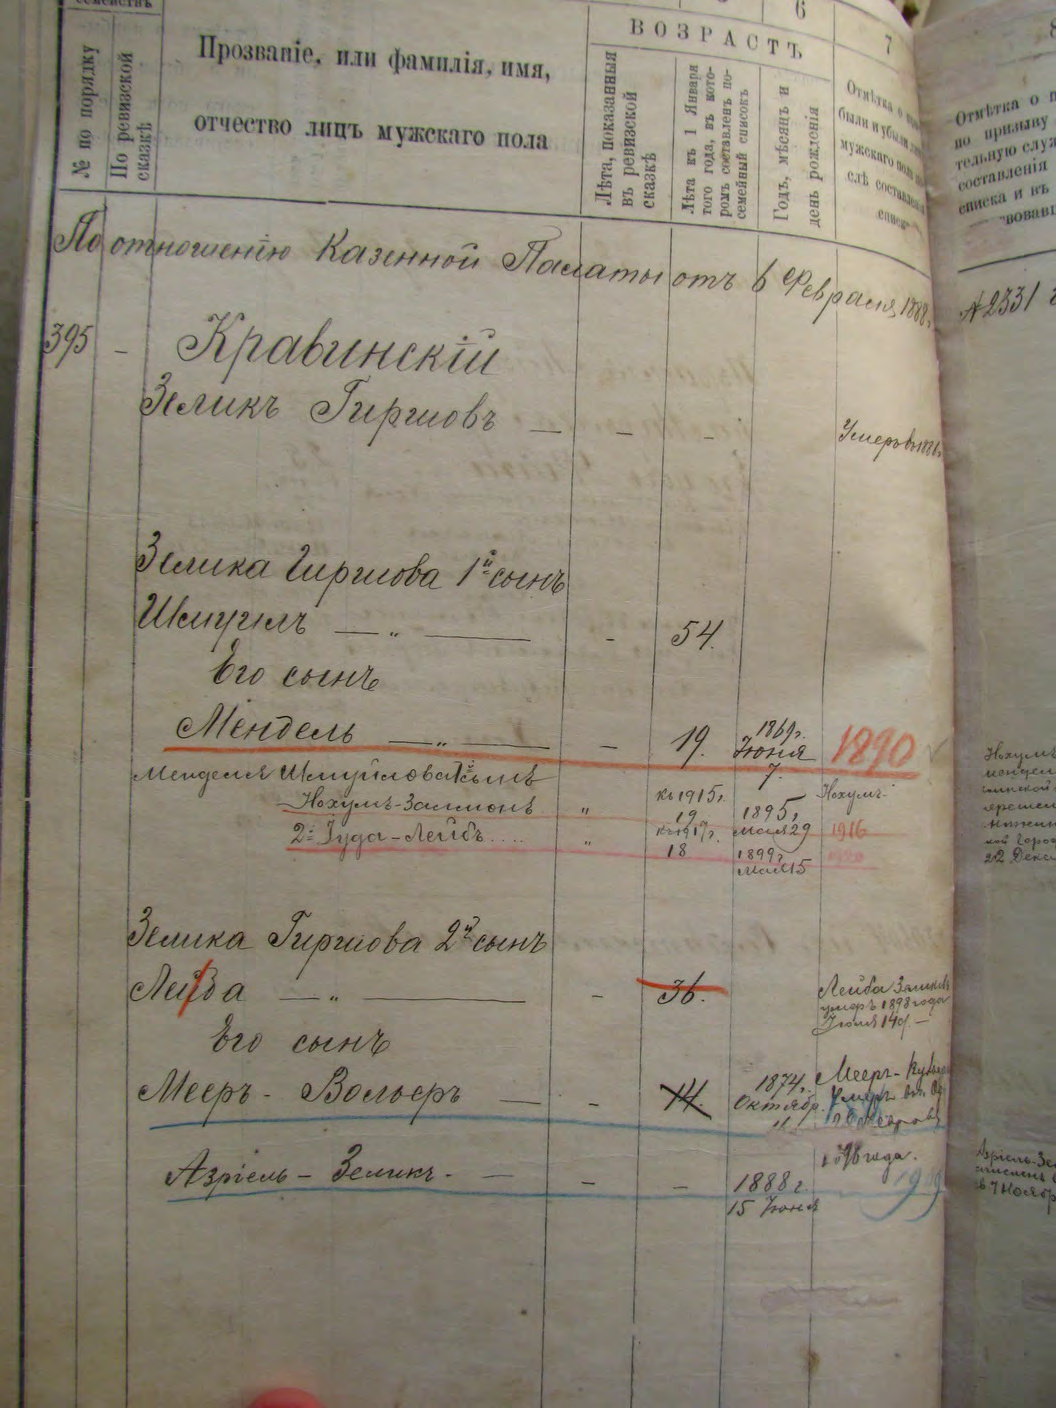 6
7
ВОЗРАСТЪ
№ по порядку
По ревизской сказкѣ
Прозваніе, или фамилія, имя,
отчество лицъ мужскаго пола
Лѣта, показанныя
въ ревизской
сказкѣ
Лѣта къ 1 Января
того года, въ кото-
ромъ составленъ по-
семейный списокъ
Годъ, мѣсяцъ и
день рожденія
Отмѣтка о
были и убыли
мужскаго пола
слѣ составленія
списка
Отмѣтка о
по призыву
тельную служ
составленія
списка и въ
вовавш
По отношенію Казенной Палаты отъ 6 Февраля 1888 г.
№ 2331
395 –
Кравинскій
Зеликъ Гиршовъ — – –
Умеръ въ
Зелика Гиршова 1й сынъ
Шмуилъ — „ — – 54.
Его сынъ
Мендель — „ — – 19. 1869 г. Іюня 7. 1890
Менделя Шмуйлова 1й сынъ
Нохумъ-Залмонъ „ къ 1915 г. 19 1895 г. Мая 29 1916
Нохумъ-
2й Іуда-Лейбъ.... „ 18 1899 г. Мая 15
Зелика Гиршова 2й сынъ
Лейба — „ — – 36.
Лейба Зеликовъ
умеръ 1898 года
Іюля 14 д. –
Его сынъ
Мееръ-Вольфъ — – 14. 1874 г. Октябр.
Мееръ-
Умеръ
1896 года.
Азріель-Зеликъ. — – – 1888 г. 15 Іюня